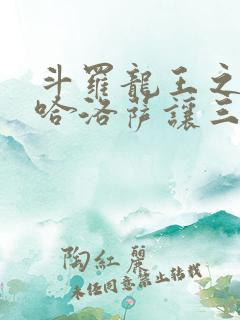 斗羅龍王之
哈洛薩讓三
陶紅麗
未經同意禁止轉載